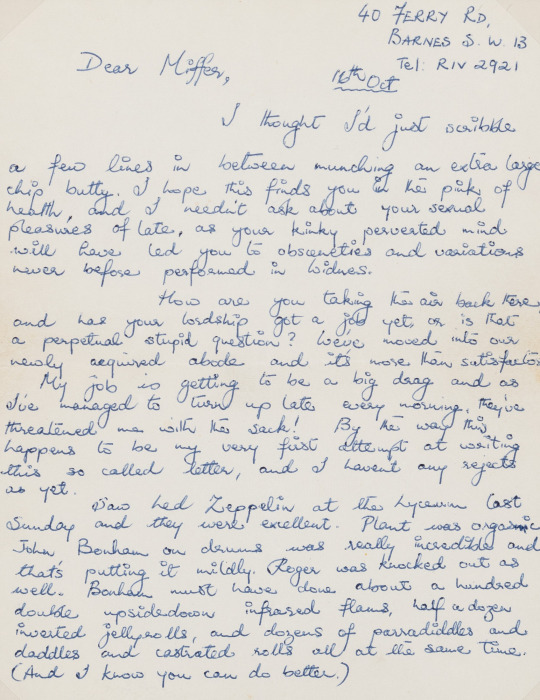 40 FERRY RD,
BARNES S.W. 13
Tel: RIV 2921
16th Oct
Dear Miffer,
I thought I'd just scribble
a few lines in between munching an extra large
chip butty. I hope this finds you in the pink of
health, and I needn't ask about your sexual
pleasures of late, as your kinky perverted mind
will have led you to obsceneties and variations
never before performed in Widnes.
How are you taking the air back there,
and has your lordship got a job yet, or is that
a perpetual stupid question? We've moved into our
newly acquired abode and it's more than satisfactor
My job is getting to be a big drag and as
I've managed to turn up late every morning, they've
threatened me with the sack! By the way this
happens to be my very first attempt at writing
this so called letter, and I havent any rejects
as yet.
Saw Led Zeppelin at the Lyceum last
Sunday and they were excellent. Plant was orgasmic
John Bonham on drums was really incredible and
that's putting it mildly. Roger was knocked out as
well. Bonham must have done about a hundred
double upsidedown infrared flams, half a dozen
inverted jellyrolls, and dozens of parradiddles and
daddles and castrated rolls all at the same time.
(And I know you can do better.)